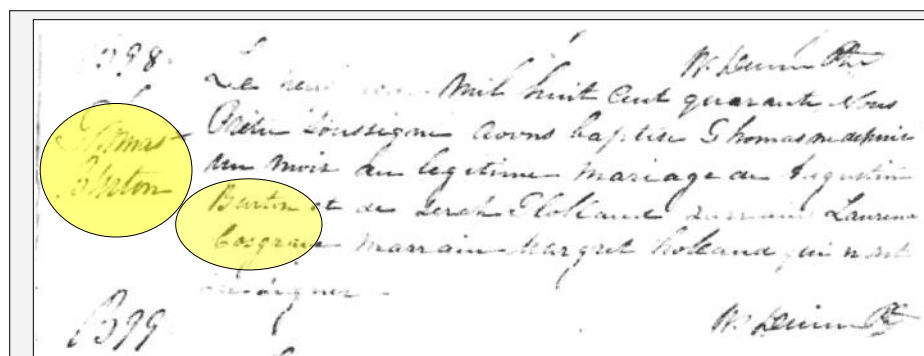 B98.
Thomas
Burton
Le neuf mil huit cent quarante Nous
Prêtre soussigné avons baptise Thomas né depuis
un mois du legitime mariage de Augustin
Burton et de Sereh Holland parrain Laurence
Cosgrave marraine Margret holland qui n'ont
su signer
B99